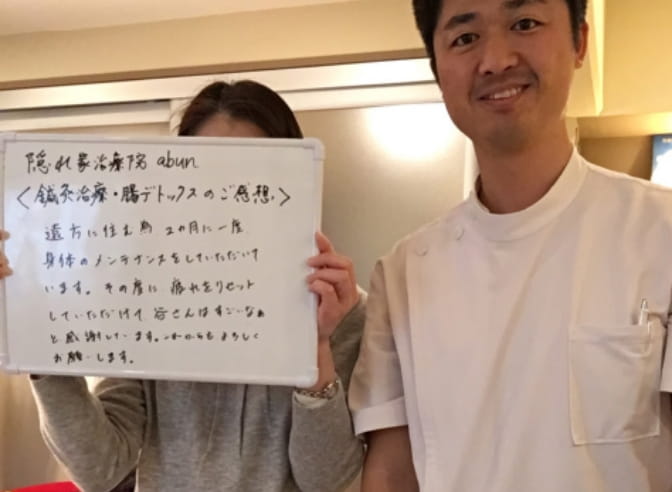 隠れ家治療院 abun
〈鍼灸治療・腸デトックスのご感想〉
遠方に住む為 2ヵ月に一度
身体のメンテナンスをしていただいて
います。その度に 疲れをリセット
していただけて 谷さんはすごいなぁ
と感謝しています。これからもよろしく
お願いします。